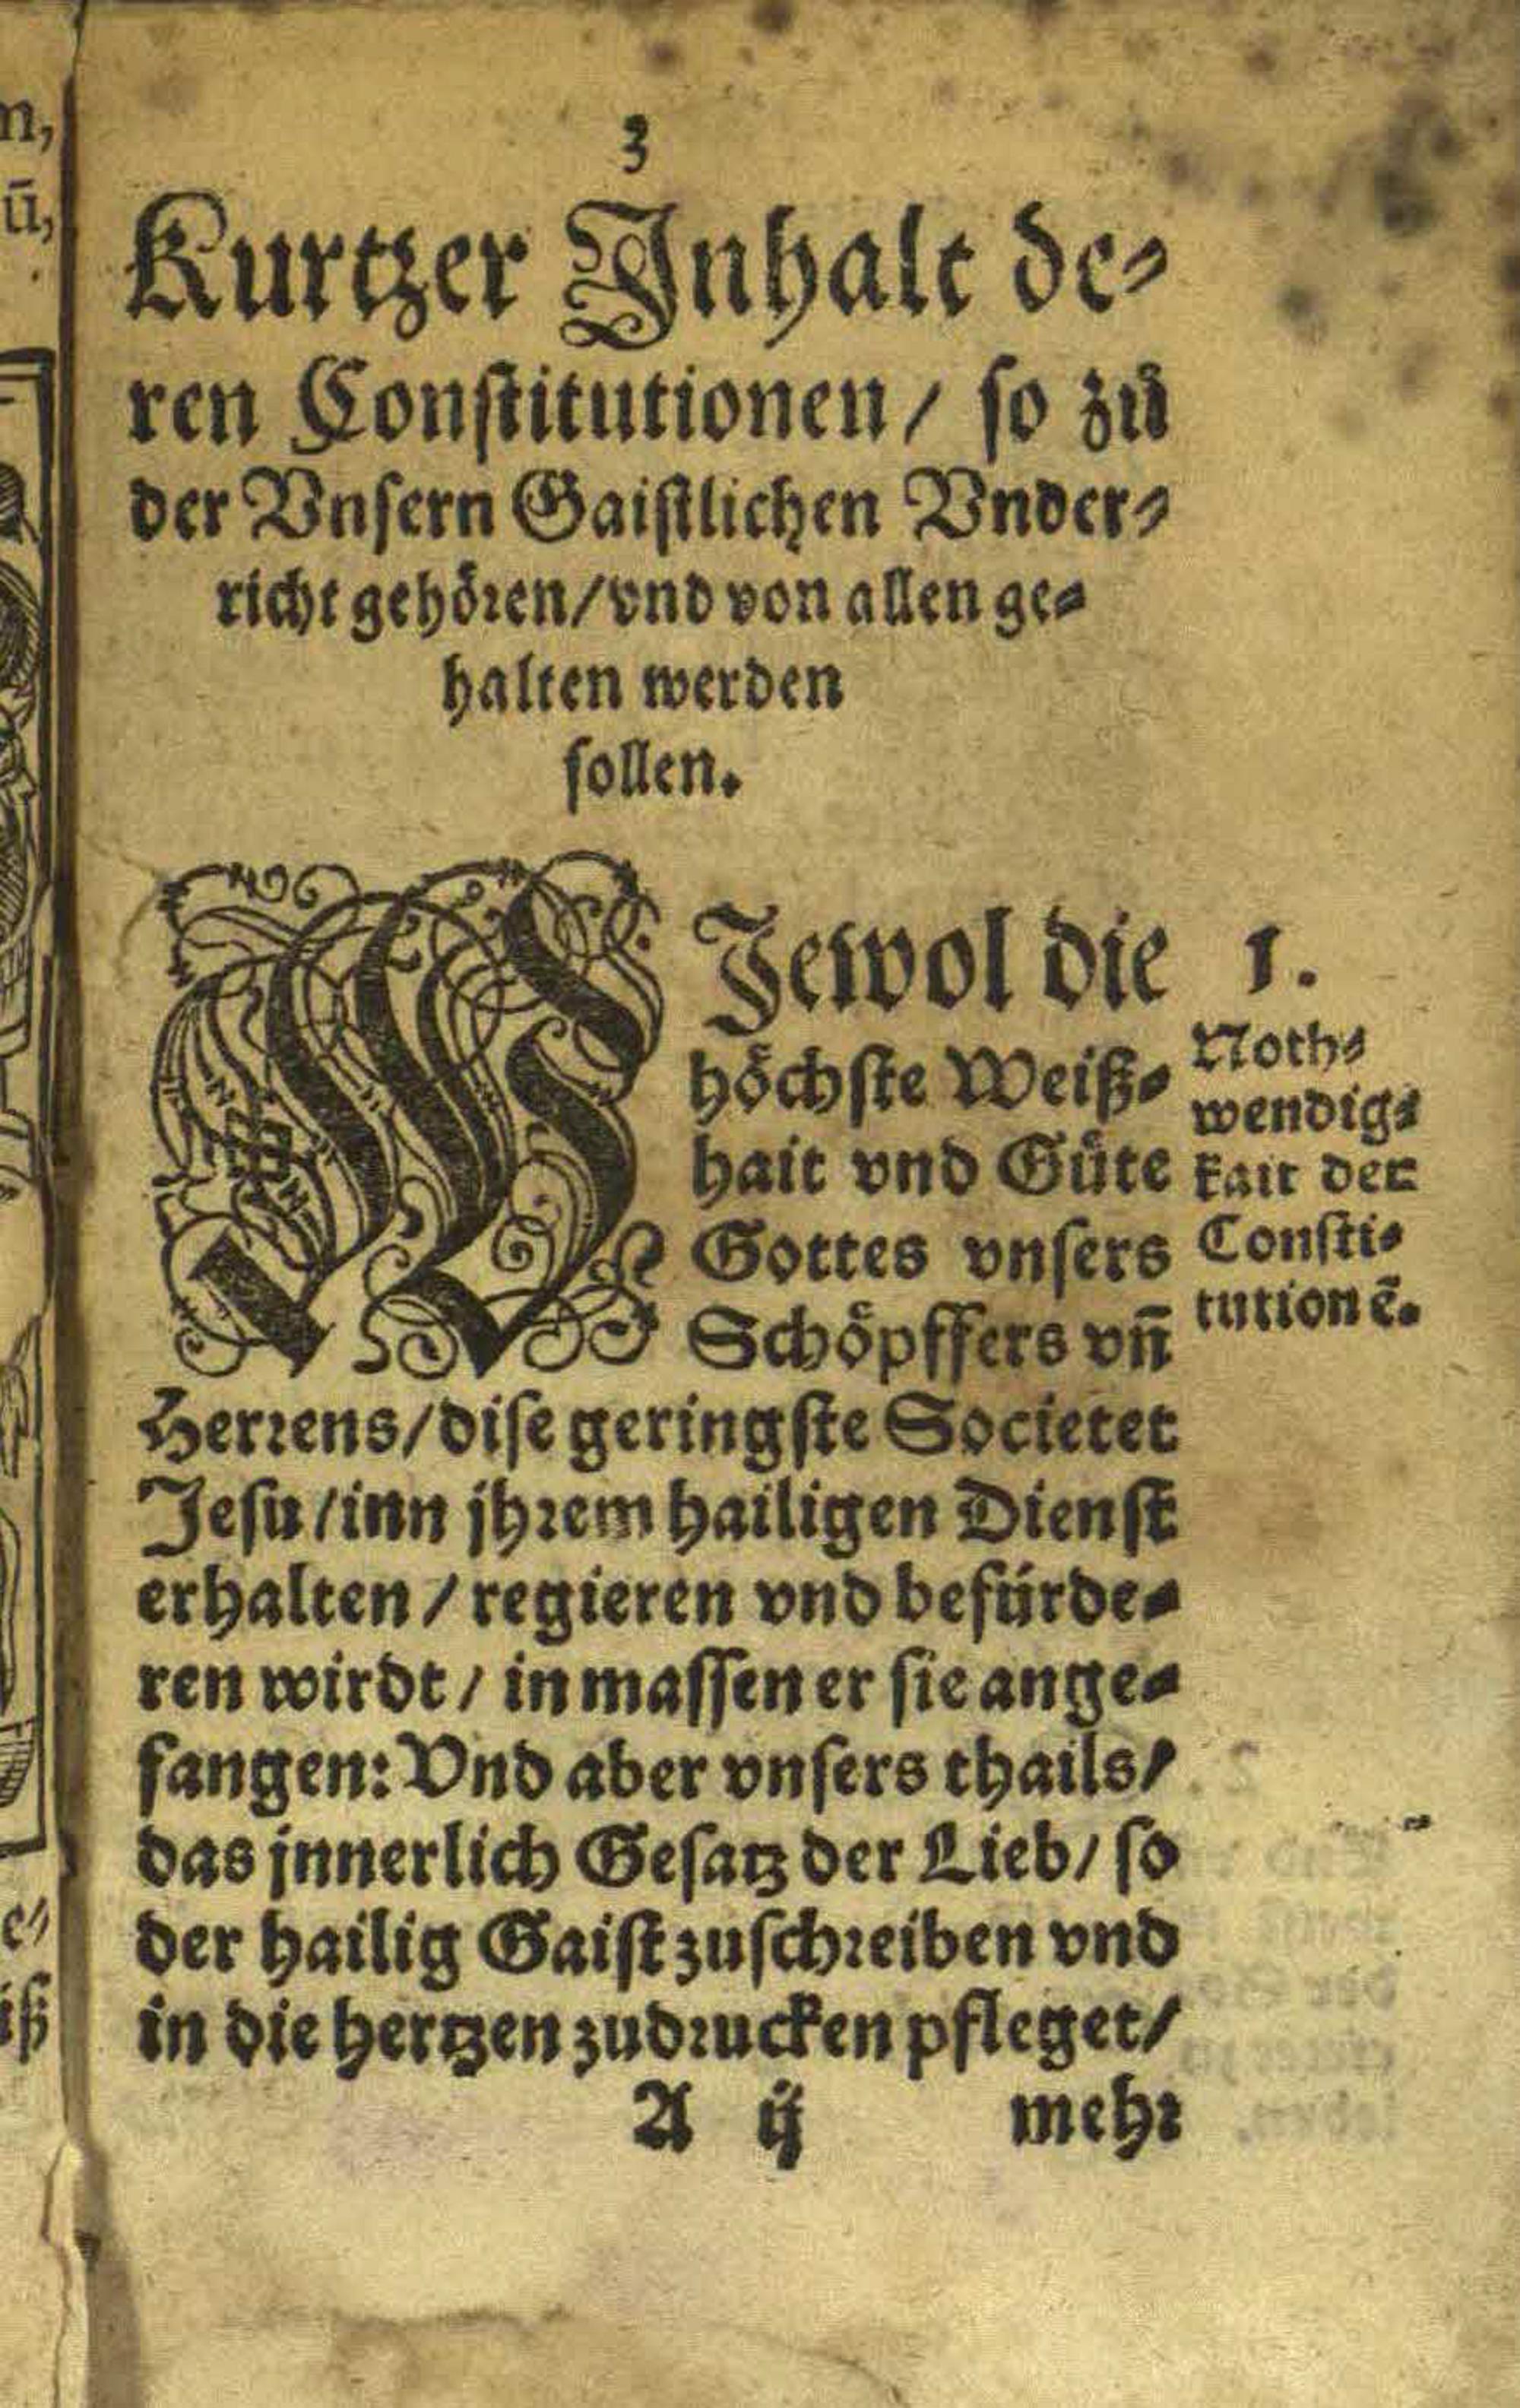 3
Kurtzer Inhalt de-
ren Constitutionen / so zů
der Vnsern Gaistlichen Vnder-
richt gehören / vnd von allen ge-
halten werden
sollen.
WIewol die
höchste Weiß-
hait vnd Güte
Gottes vnsers
Schöpffers vn̄
Herrens / dise geringste Societet
Jesu / inn jhrem hailigen Dienst
erhalten / regieren vnd befürde-
ren wirdt / in massen er sie ange-
fangen: Vnd aber vnsers thails /
das jnnerlich Gesatz der Lieb / so
der hailig Gaist zuschreiben vnd
in die hertzen zudrucken pfleget /
A ij mehr
1.
Noth-
wendig-
kait der
Consti-
tutionē.